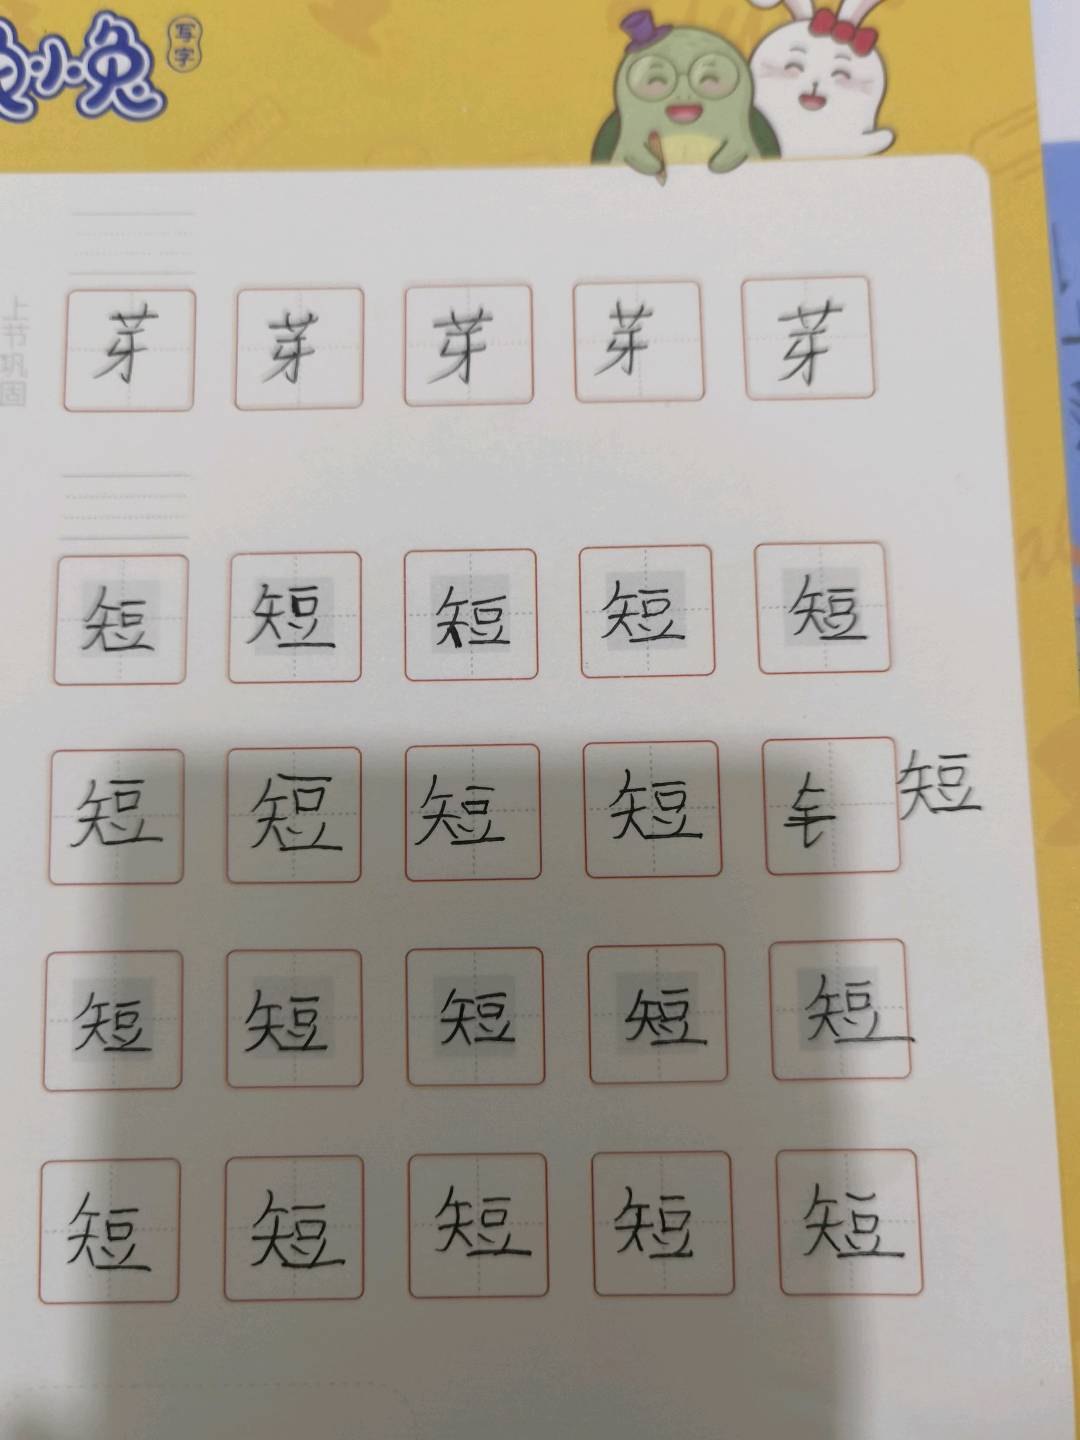 小兔
写字
上节巩固
芽 芽 芽 芽 芽
短 短 短 短 短
短 短 短 短 短
短 短 短 短 短
短 短 短 短 短